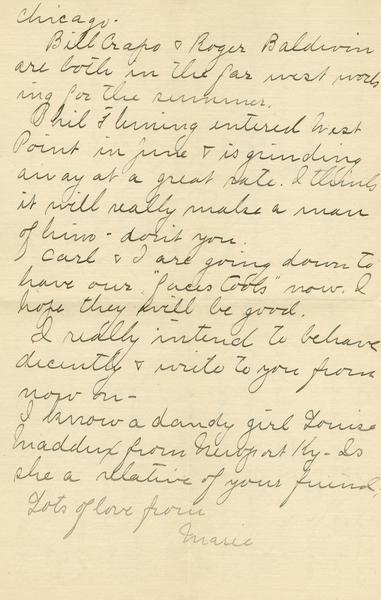 Chicago.
Bill Crapo & Roger Baldwin
are both in the far west work
ing for the summer.
Phil Fleming entered West
Point in June & is grinding
away at a great rate. I think
it will really make a man
of him - don't you.
Carl & I are going down to
have our "faces took" now. I
hope they will be good.
I really intend to behave
decently & write to you from
now on -
I know a dandy girl Louise
Maddux from Newport Ky - Is
she a relative of your friend.
Lots of love from
Marie